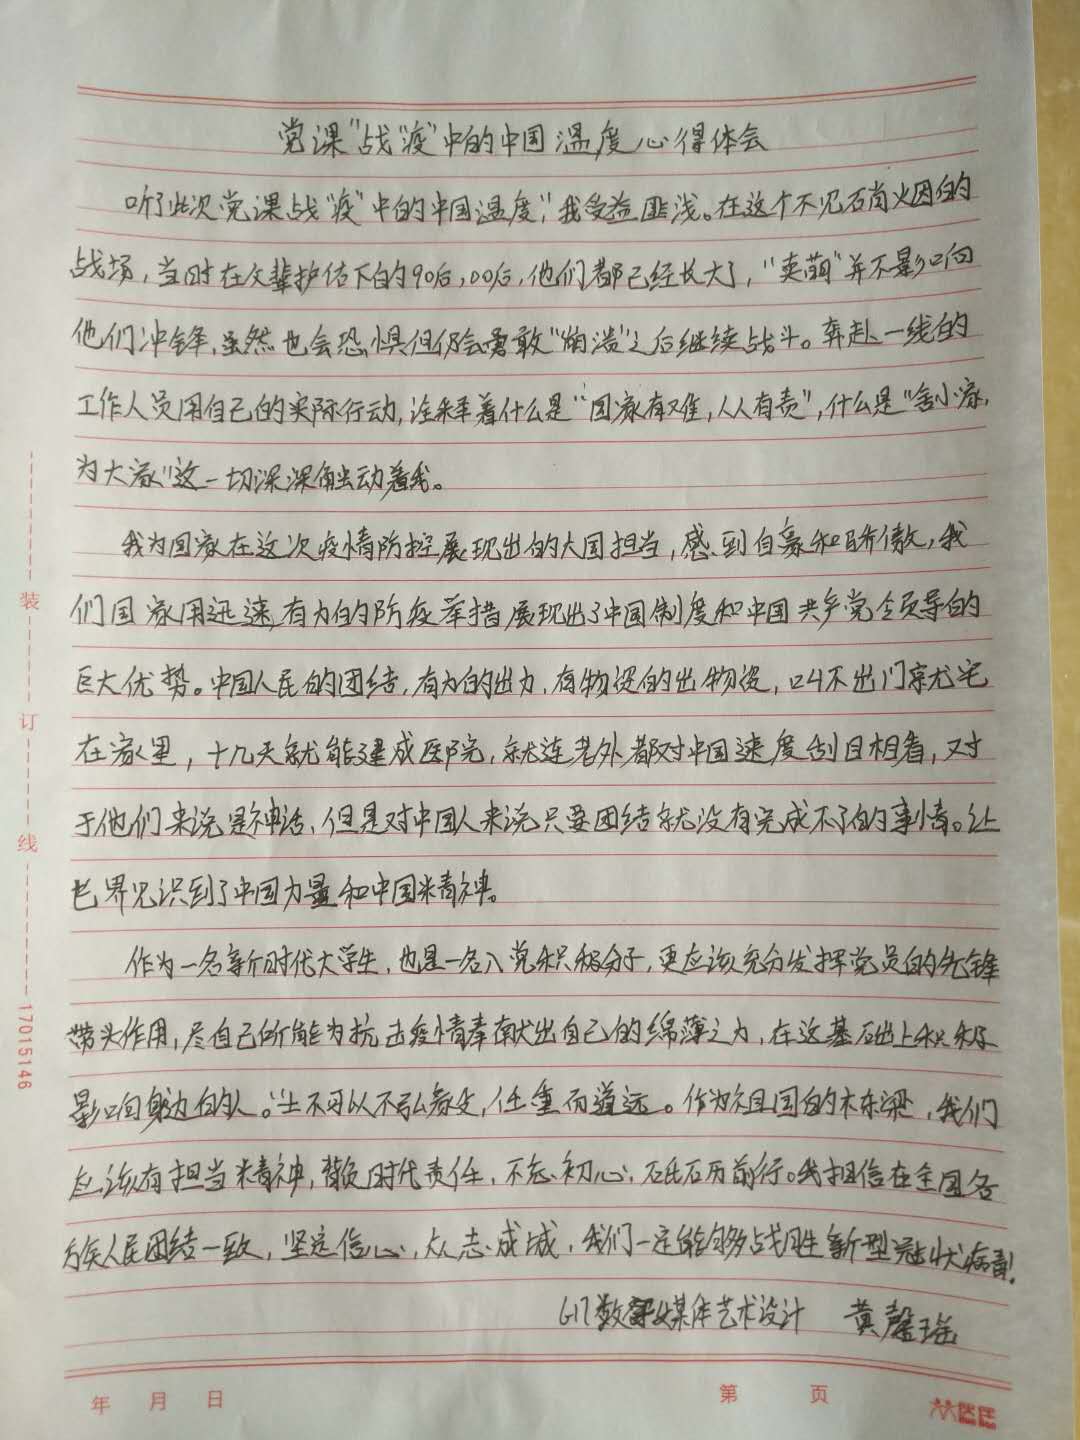 党课"战"疫"中的中国温度心得体会
听了此次党课战"疫"中的中国温度",我受益匪浅。在这个不见硝烟的
战场,当时在父辈护估下的90后,00后,他们都已经长大了,"卖萌"并不影响
他们冲锋,虽然也会恐惧但仍会勇敢"崩溃"之后继续战斗。奔赴一线的
工作人员用自己的实际行动,诠释着什么是"国家有难,人人有责",什么是"舍小家,
为大家"这一切深深触动着我。
我为国家在这次疫情防控展现出的大国担当,感到自豪和骄傲,我
们国家用迅速,有力的防疫举措展现出了中国制度和中国共产党领导的
巨大优势。中国人民的团结,有力的出力,有物资的出物资,叫不出门就宅
在家里,十几天就能建成医院,就连老外都对中国速度刮目相看,对
于他们来说是神话,但是对中国人来说只要团结就没有完成不了的事情。让
世界见识到了中国力量和中国精神。
作为一名新时代大学生,也是一名入党积极分子,更应该充分发挥党员的先锋
带头作用,尽自己所能为抗击疫情奉献出自己的绵薄之力,在这基础上积极
影响身边的人。"士不可以不弘毅,任重而道远。作为祖国的栋梁,我们
应该有担当精神,背负时代责任,不忘初心,砥砺前行。我相信在全国各
族人民团结一致,坚定信心,众志成城,我们一定能够战胜新型冠状病毒!
G17数字媒体艺术设计 黄馨瑶
装 订 线 17015146
年 月 日 第 页